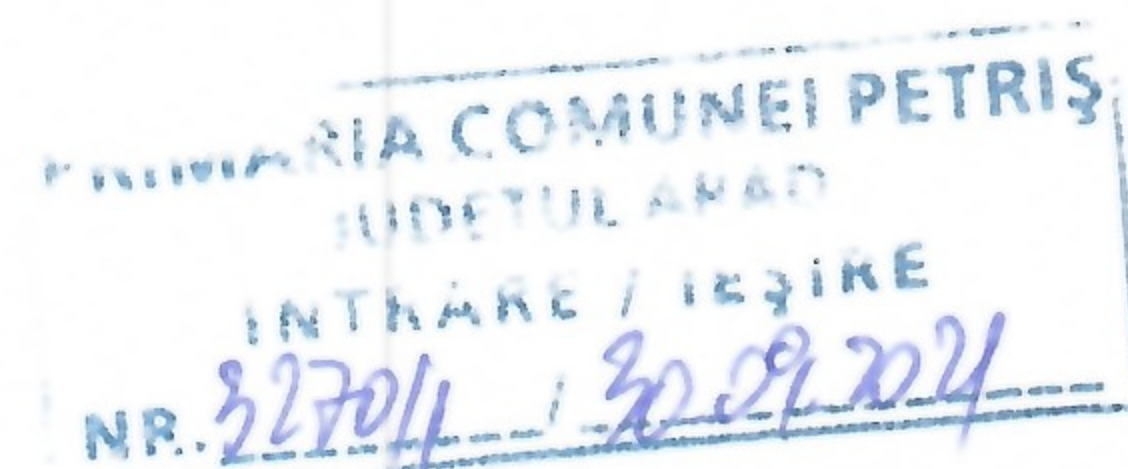 PRIMĂRIA COMUNEI PETRIŞ
JUDEŢUL ARAD
INTRARE / IEŞIRE
NR. 3270/1 / 30.09.2021